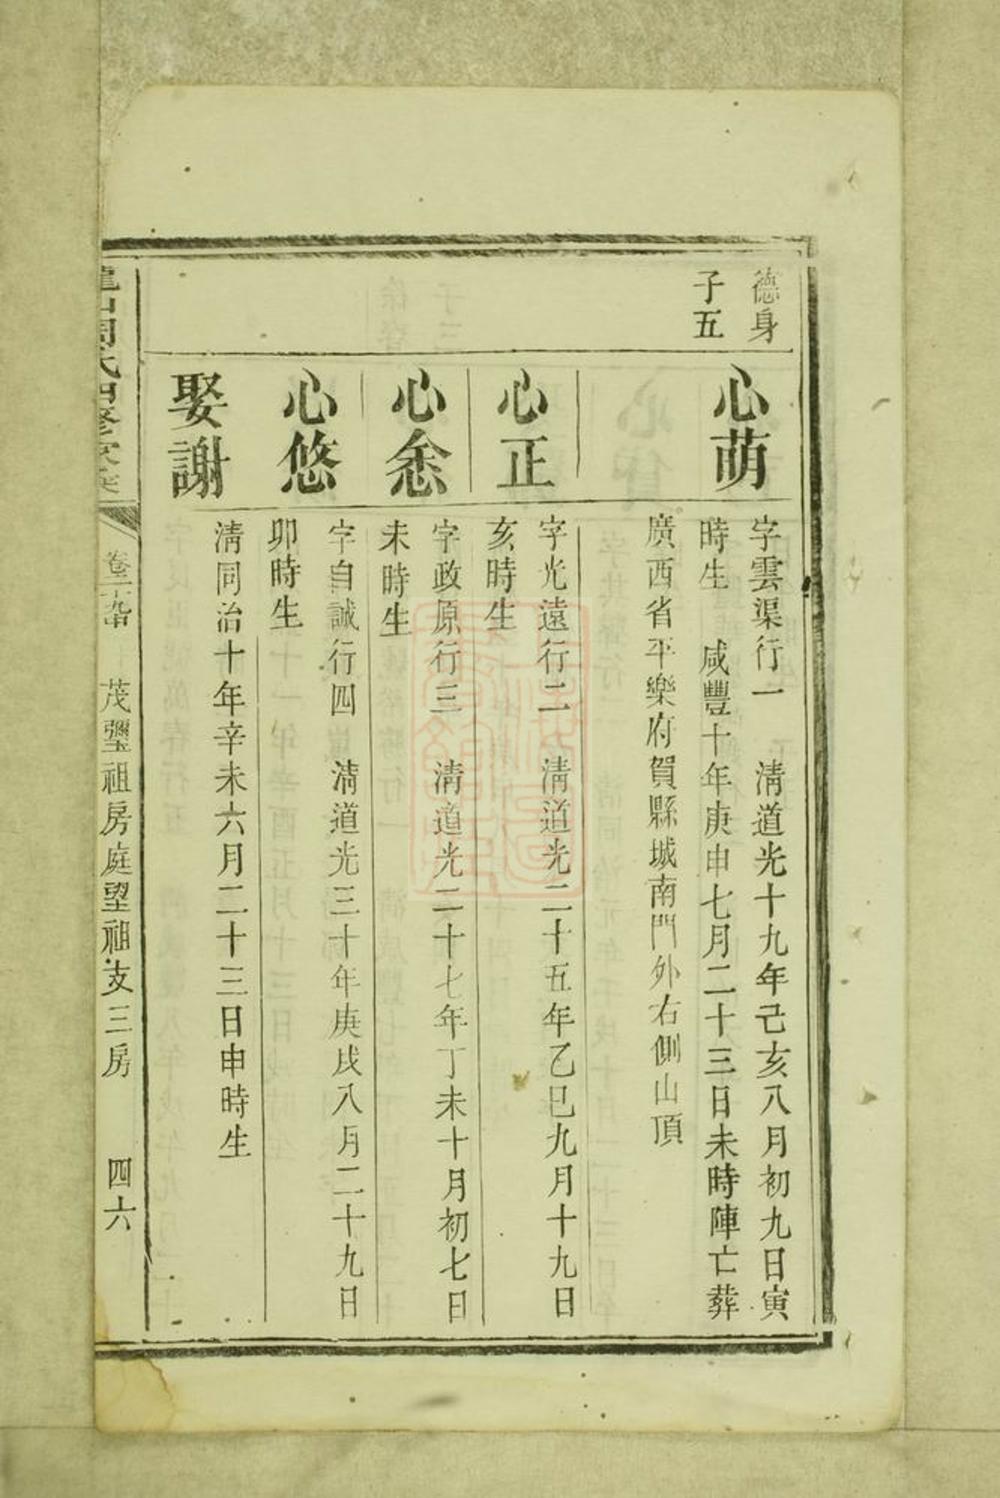 德身
子五
心萌
字雲渠行一　清道光十九年己亥八月初九日寅
時生　咸豐十年庚申七月二十三日未時陣亡葬
廣西省平樂府賀縣城南門外右側山頂
心正
字光遠行二　清道光二十五年乙巳九月十九日
亥時生
心悆
字政原行三　清道光二十七年丁未十月初七日
未時生
心悠
字自誠行四　清道光三十年庚戌八月二十九日
卯時生
娶謝
清同治十年辛未六月二十三日申時生
周氏四修
茂壐祖房庭望祖支三房　四六